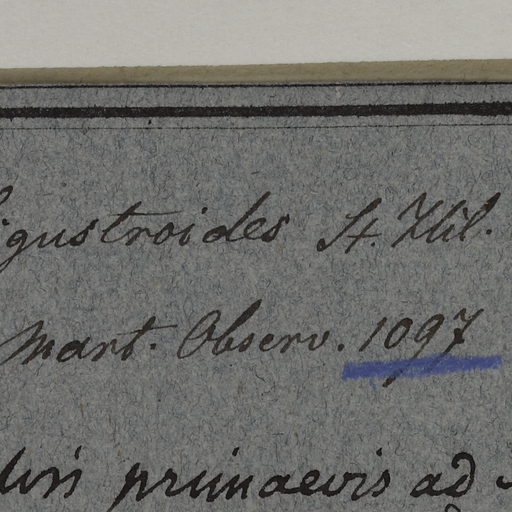 ligustroides St. Hil.
Mart. Observ. 1097
primaevis ad